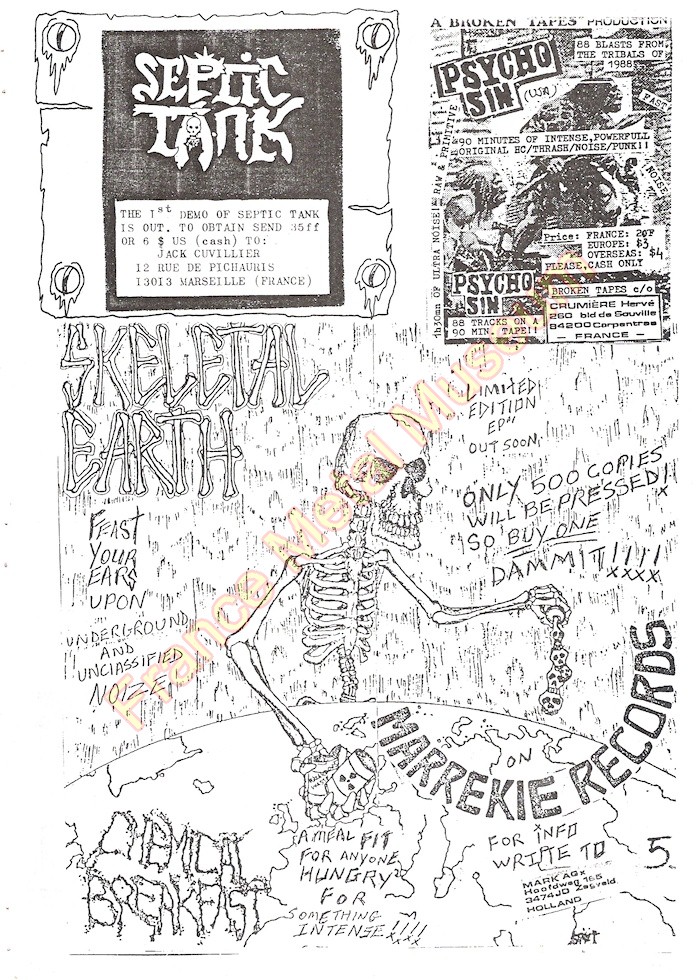 SEPTIC
TANK
THE 1st DEMO OF SEPTIC TANK
IS OUT. TO OBTAIN SEND 35ff
OR 6 $ US (cash) TO:
JACK CUVILLIER
12 RUE DE PICHAURIS
13013 MARSEILLE (FRANCE)
A BROKEN TAPES" PRODUCTION
88 BLASTS FROM
THE TRIBALS OF
1988
PSYCHO
SIN
(WA)
FAST
1h30mn OF ULTRA NOISE! RAW & PRIMITIVE
90 MINUTES OF INTENSE, POWERFULL
ORIGINAL HC/THRASH/NOISE/PUNK!!
NOISY
Price: FRANCE: 20F
EUROPE: $3
OVERSEAS: $4
PLEASE, CASH ONLY
PSYCHO
SIN
88 TRACKS ON A
90 MIN. TAPE!!
BROKEN TAPES c/o
CRUMIÈRE Hervé
260 bld de Souville
84200 Carpentras
- FRANCE -
SKELETAL
EARTH
LIMITED
EDITION
EP"
OUT SOON.
ONLY 500 COPIES
WILL BE PRESSED!
SO BUY ONE
DAMMIT!!!!
xxxx
FEAST
YOUR
EARS
UPON
UNDERGROUND
AND
UNCLASSIFIED
NOIZE!
ON
MARREKIE RECORDS
CHEMICAL
BREAKFAST
A MEAL FIT
FOR ANYONE
HUNGRY
FOR
SOMETHING
INTENSE!!!!
xxxx
FOR INFO
WRITE TO
MARK AGx
Hoofdweg 165
3474JD Zegveld
HOLLAND
5
France Metal Museum